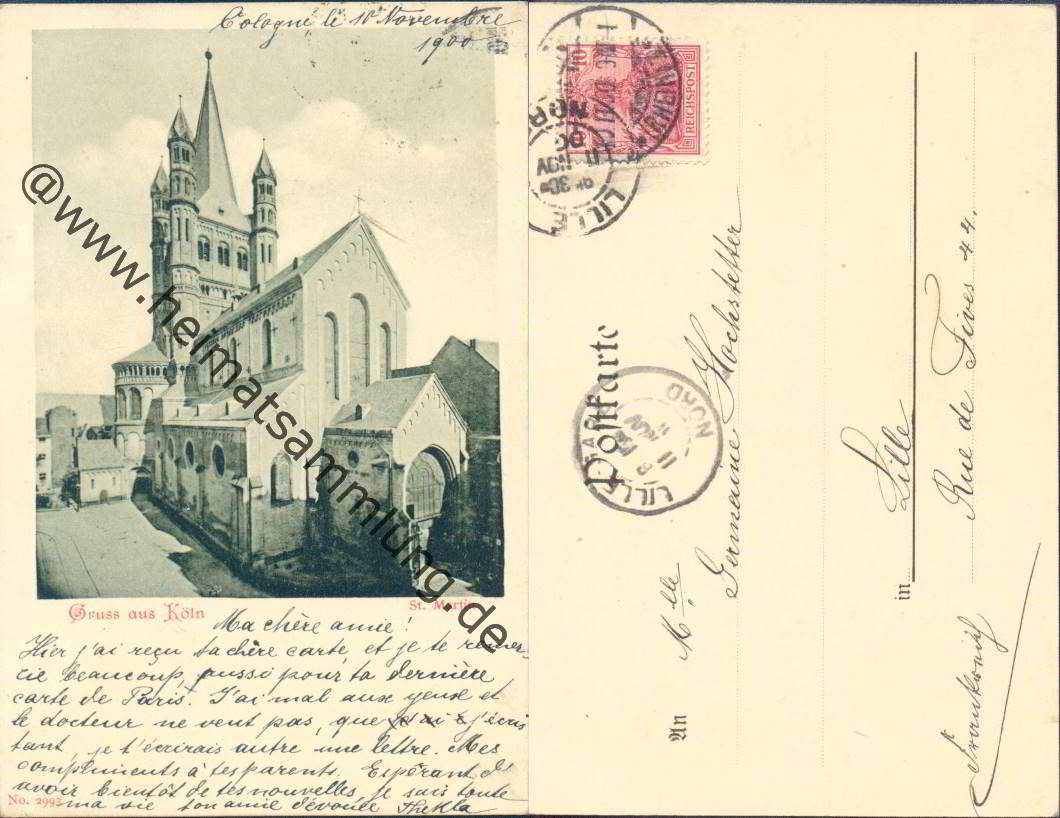 Cologne, le 10 Novembre
1900
@www.heimatsammlung.de
Gruss aus Köln
St. Martin
Ma chère amie!
Hier j'ai reçu ta chère carte, et je te remer,
cie beaucoup, aussi pour ta dernière
carte de Paris. J'ai mal aux yeux et
le docteur ne veut pas, que j'écris
tant, je t'écrirais autre une lettre. Mes
compliments à tes parents. Espérant d'
avoir bientôt de tes nouvelles, je suis toute
ma vie ton amie dévouée Thekla
No. 2993
10
REICHSPOST
LILLE
NORD
Postkarte
LILLE
NORD
An
Mlle
Germaine Hochstetter
in
Lille
Rue de Fives 44.
Frankreich